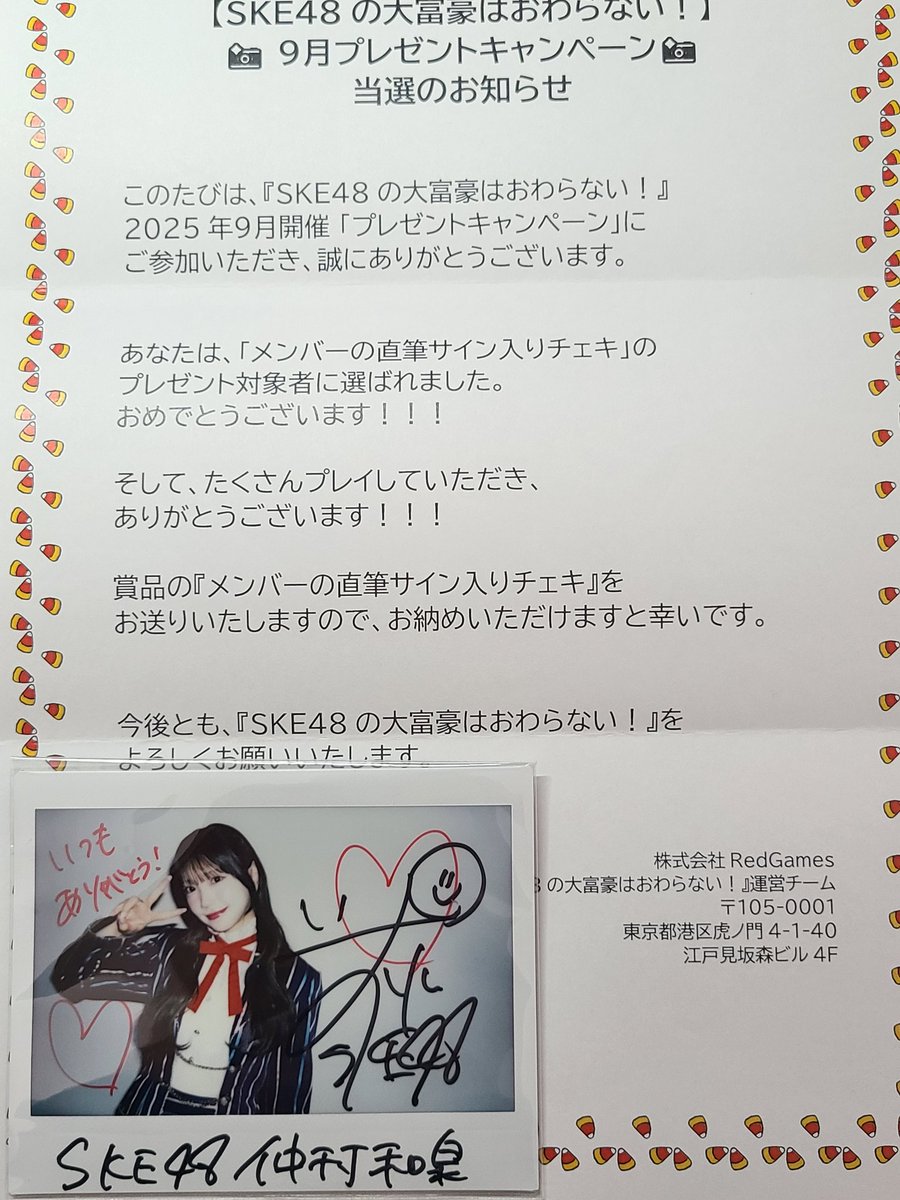 【SKE48の大富豪はおわらない！】
9月プレゼントキャンペーン
当選のお知らせ
このたびは、『SKE48の大富豪はおわらない！』
2025年9月開催「プレゼントキャンペーン」に
ご参加いただき、誠にありがとうございます。
あなたは、「メンバーの直筆サイン入りチェキ」の
プレゼント対象者に選ばれました。
おめでとうございます！！！
そして、たくさんプレイしていただき、
ありがとうございます！！！
賞品の『メンバーの直筆サイン入りチェキ』を
お送りいたしますので、お納めいただけますと幸いです。
今後とも、『SKE48の大富豪はおわらない！』を
よろしくお願いいたします。
株式会社RedGames
8の大富豪はおわらない！』運営チーム
〒105-0001
東京都港区虎ノ門4-1-40
江戸見坂森ビル4F
いつも
ありがとう!
SKE48
SKE48 仲村和泉